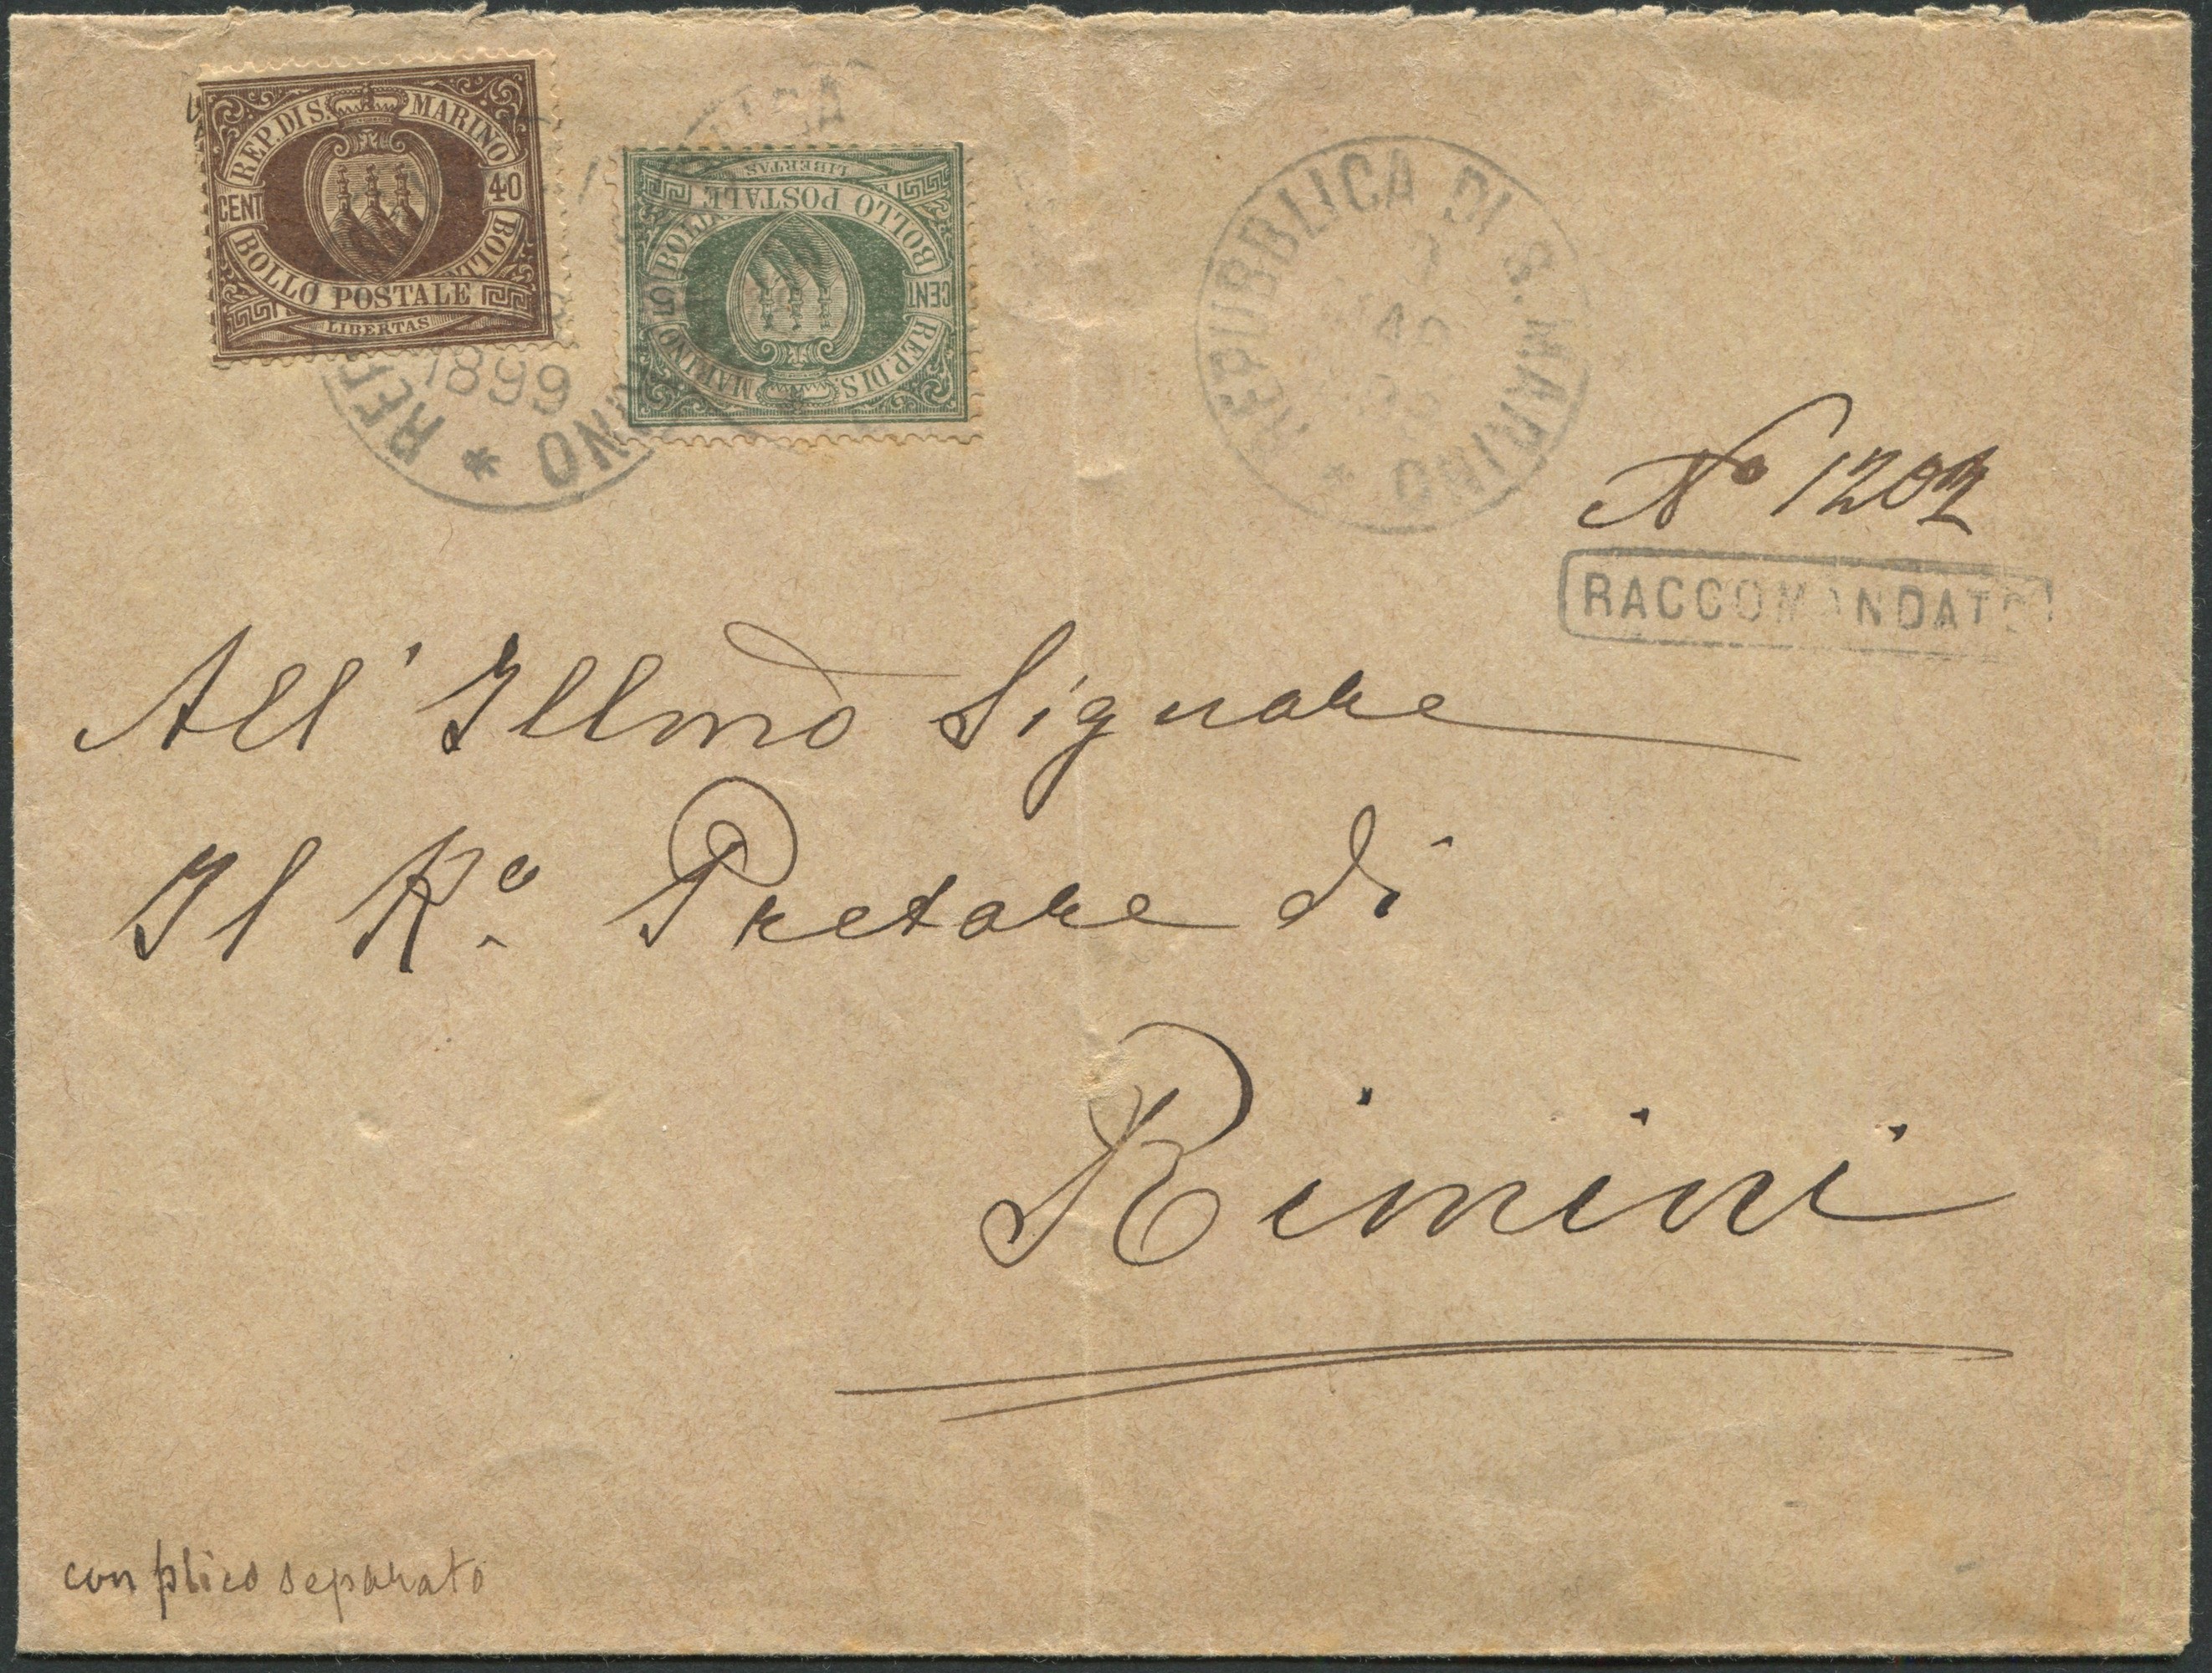 REP. DI S. MARINO
CENT 40
BOLLO POSTALE BOLL
LIBERTAS
REP. DI S. MARINO
CENT 5
BOLLO POSTALE BOLL
LIBERTAS
1899
REPUBBLICA DI S. MARINO *
No 1202
RACCOMANDATO
All' Illmo Signore
Il Ro. Pretore di
Rimini
con plico separato